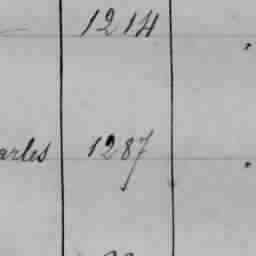 1214
arles 1287